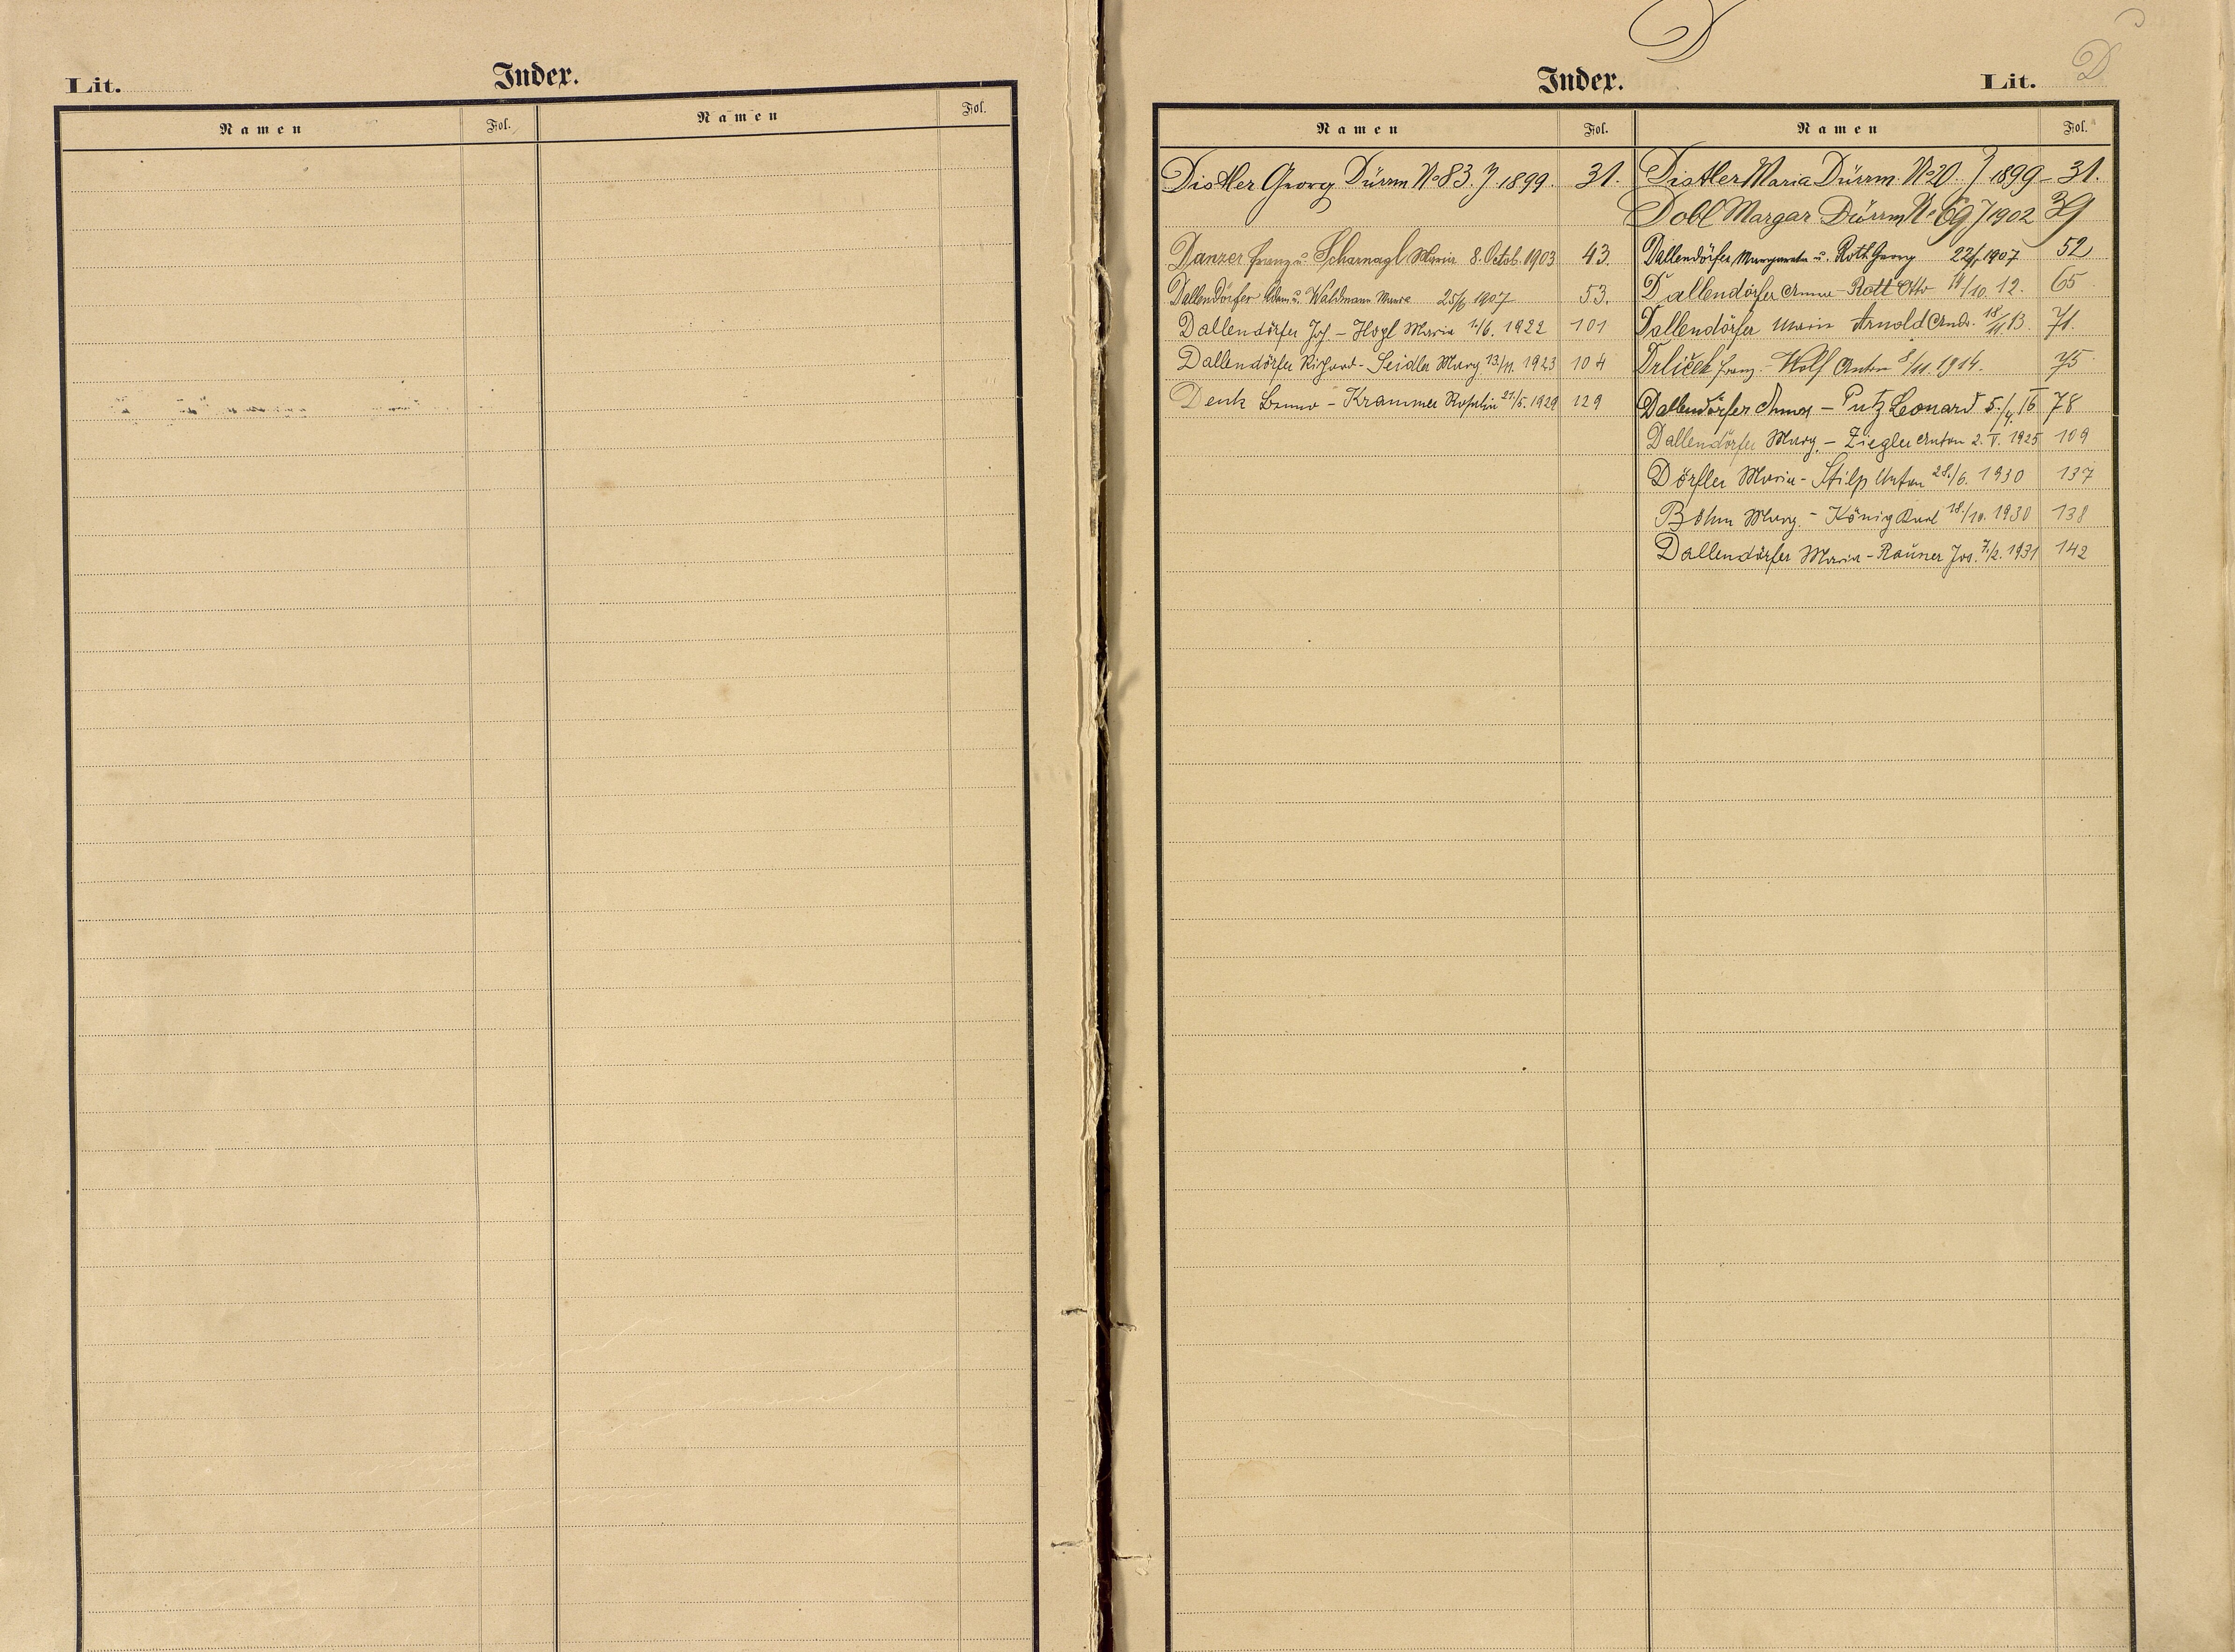 Lit.
Index.
Namen Fol. Namen Fol.
D
Index.
Lit. D
Namen Fol. Namen Fol.
Distler Georg Dürrm No 83. J 1899. 31.
Danzer Franz u. Scharnagl Maria 8. Octob. 1903 43.
Dallendörfer Adam u. Waldmann Maria 1907 53.
Dallendörfer Jos. – Hogl Maria 1922 101
Dallendörfer Richard – Seidler Marg. 13/11. 1923 104
Denk Bruno – Krammer Rosalia 21/5. 1929 129
Distler Maria Dürrm. No 20. J 1899 – 31.
Dobl Margar Dürrm No 69 J 1902 39
Dallendörfer Margareta u. Roth Georg 1907 52
Dallendörfer Anna – Rott Otto 14/10. 12. 65
Dallendörfer Maria Arnold Andr. 18/11. 13. 71.
Drliček Franz. – Wolf Anton 8/11. 1914. 75
Dallendörfer Anna – Putz Leonard 5./4. 16 78
Dallendörfer Marg. – Ziegler Anton 2. V. 1925 109
Dörfler Maria – Stilp Anton 28./6. 1930 137
Böhm Marg. – König Karl 18./10. 1930 138
Dallendörfer Maria – Rauner Jos. 7./2. 1931 142